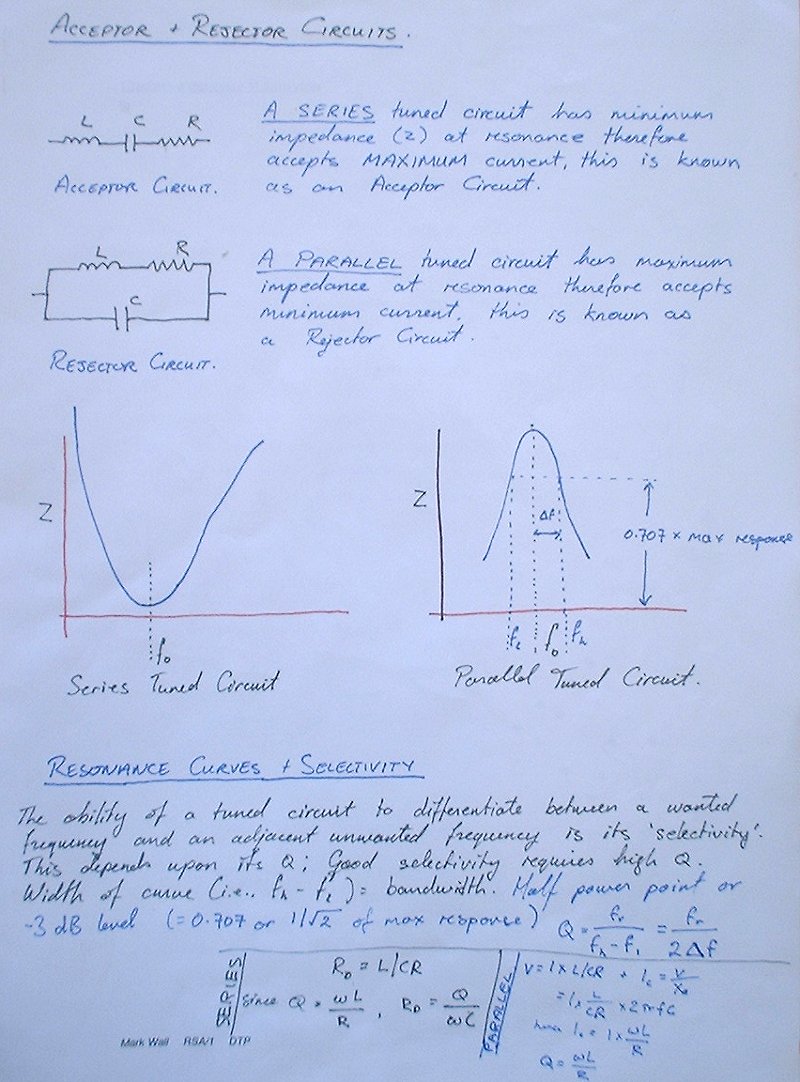 ACCEPTOR + REJECTOR CIRCUITS.
L C R
ACCEPTOR CIRCUIT.
A SERIES tuned circuit has minimum
impedance (z) at resonance therefore
accepts MAXIMUM current, this is known
as an Acceptor Circuit.
L R
C
REJECTOR CIRCUIT.
A PARALLEL tuned circuit has maximum
impedance at resonance therefore accepts
minimum current, this is known as
a Rejector Circuit.
Z
f₀
Series Tuned Circuit
Z
Δf
0.707 × max response
fₗ f₀ fₕ
Parallel Tuned Circuit.
RESONANCE CURVES + SELECTIVITY
The ability of a tuned circuit to differentiate between a wanted
frequency and an adjacent unwanted frequency is its 'selectivity'.
This depends upon its Q; Good selectivity requires high Q.
Width of curve (i.e.. fₕ - fₗ) = bandwidth. Half power point or
-3 dB level (= 0.707 or 1/√2 of max response) Q = fᵣ/fₕ-fₗ = fᵣ/2Δf
SERIES
R_D = L/CR
since Q = ωL/R, R_D = Q/ωC
PARALLEL
V = I × L/CR + I_c = V/X_c
= I × L/CR × 2πfC
hence I_c = I × ωL/R
Q = ωL/R
Mark Wall RSA/1 DTP